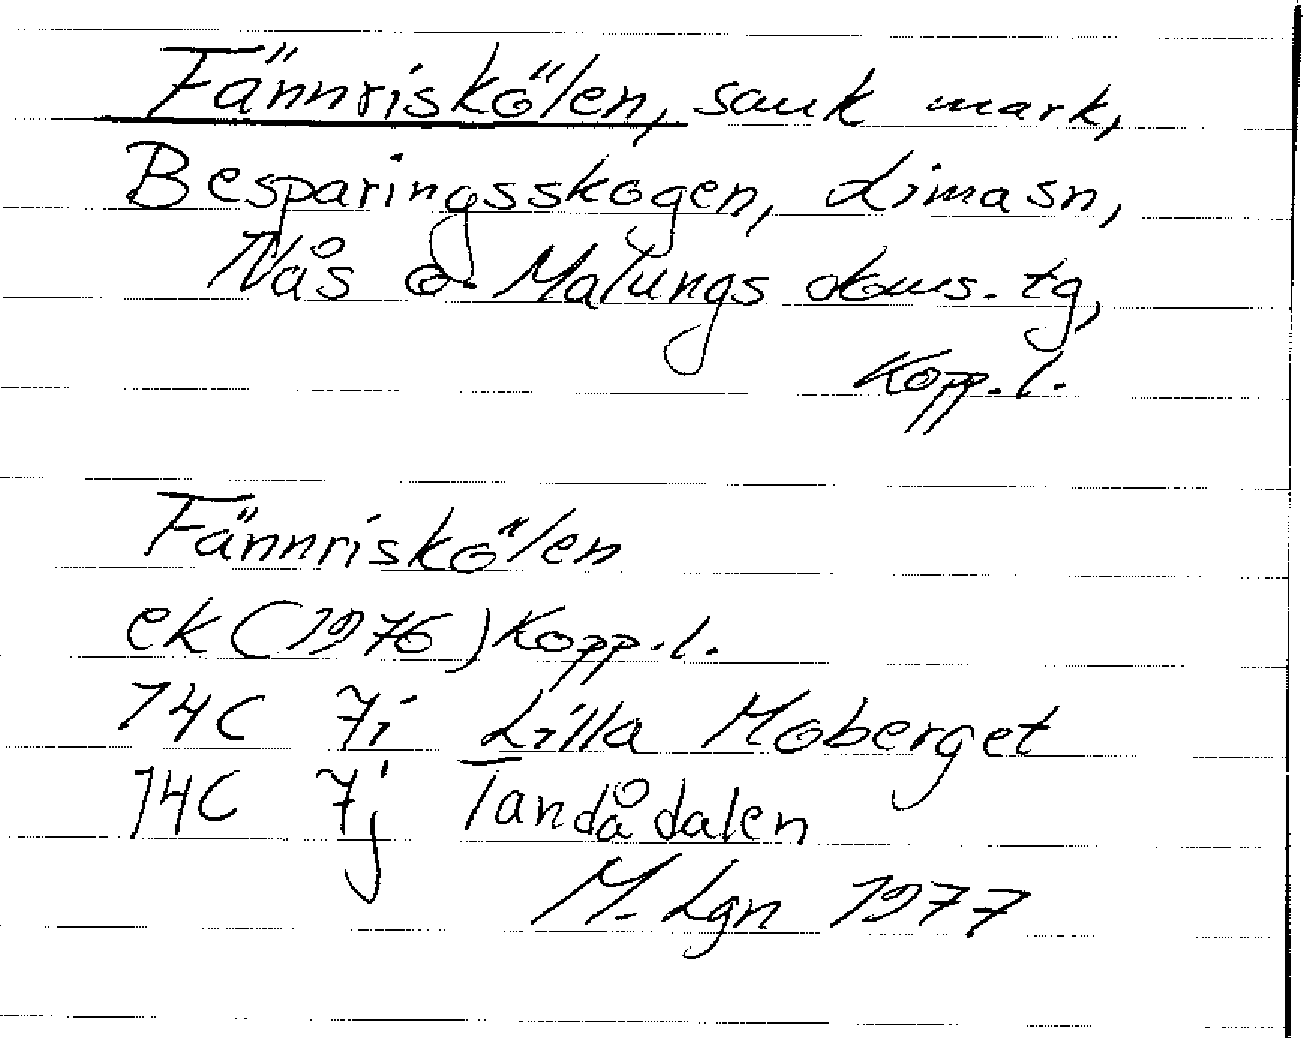 Fännriskölen, sank mark,
Besparingsskogen, Lima sn,
Nås o. Malungs doms. tg,
Kopp. l.
Fännriskölen
ek (1976) Kopp. l.
14C 7i Lilla Moberget
14C 7j Tandådalen
M. Lgn 1977